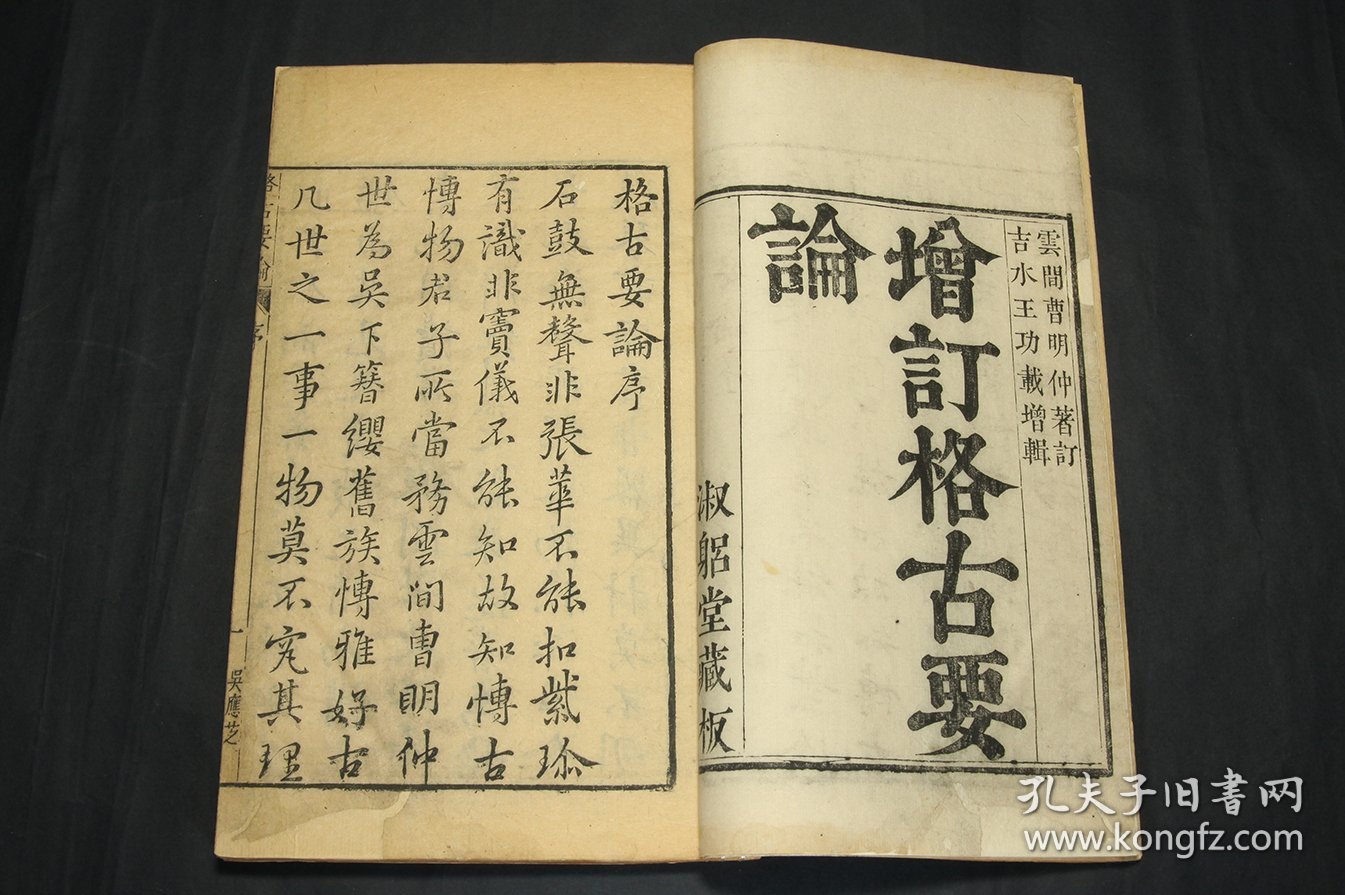 雲間曹明仲著訂
吉水王功載增輯
增訂格古要
論
淑躳堂藏板
格古要論序
石鼓無聲非張華不能扣紫珎
有識非竇儀不能知故知博古
博物君子所當務雲間曹明仲
世為吳下簪纓舊族博雅好古
凡世之一事一物莫不究其理
格古要論
序
一
吳應芝
孔夫子旧書网
www.kongfz.com